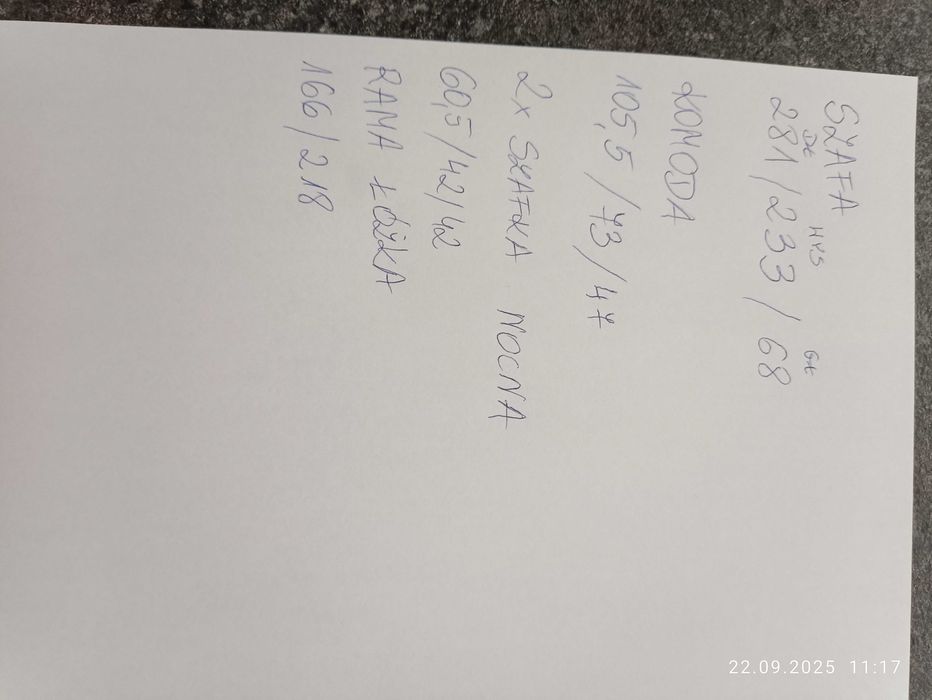 SZAFA
DŁ WYS GŁ
281 / 233 / 68
KOMODA
105,5 / 73 / 47
2x SZAFKA NOCNA
60,5 / 42 / 42
RAMA ŁÓŻKA
166 / 218
22.09.2025 11:17